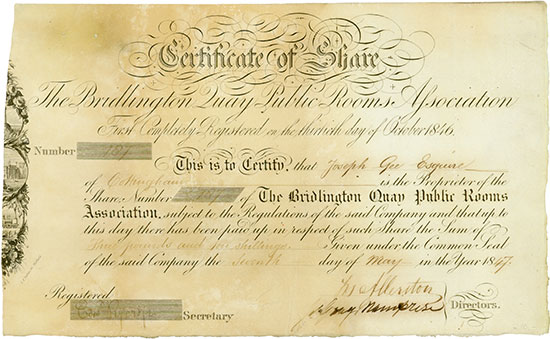 Certificate of Share
The Bridlington Quay Public Rooms Association
First Completely Registered on the thirtieth day of October 1846.
Number
This is to Certify, that Joseph Gee Esquire
of Cottingham is the Proprietor of the
Share, Number of The Bridlington Quay Public Rooms
Association, subject to the Regulations of the said Company and that up to
this day there has been paid up in respect of such Share the Sum of
pounds and ten shillings Given under the Common Seal
of the said Company the Seventh day of May in the Year 1847.
Registered
Secretary
Directors.